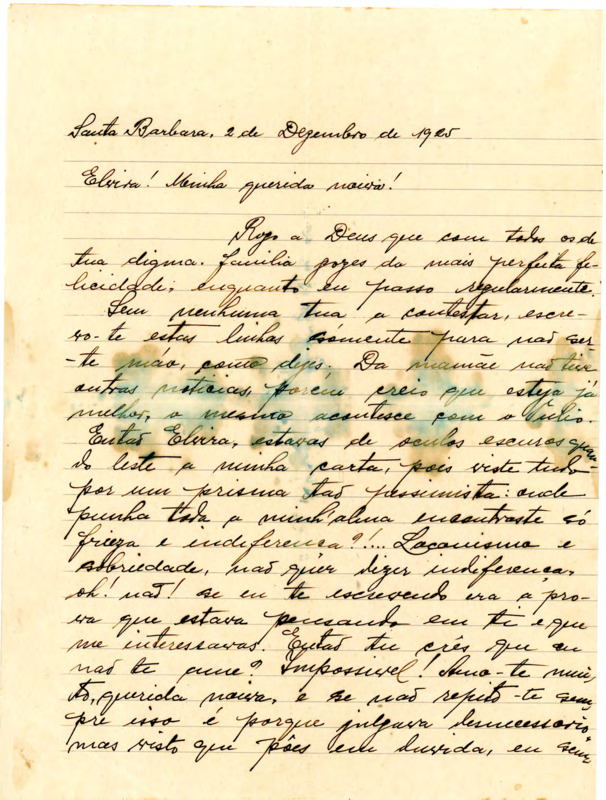 Santa Barbara, 2 de Dezembro de 1925
Elvira! Minha querida noiva!
Rogo a Deus que com todos os de
tua digma. familia gozes da mais perfeita fe-
licidade; enquanto eu passo regularmente.
Sem nenhuma tua a contestar, escre-
vo-te estas linhas sómente para naõ ser-
-te máo, como dizes. Da mamãe naõ tive
outras noticias, porém creio que esteja já
melhor, o mesmo acontesce com o Julio.
Entaõ Elvira, estavas de oculos escuros quan
do leste a minha carta, pois viste tudo
por um prisma taõ pessimista: onde
punha toda a minh'alma encontraste só
frieza e indiferença?!.... Laconismo e
sobriedade, naõ quer dizer indiferença,
oh! naõ! se eu te escrevendo era a pro-
va que estava pensando em ti e que
me interessavas. Entaõ tu crês que eu
naõ te ame? Impossivel! Amo-te mui-
to, querida noiva, e se naõ repito-te sem-
pre isso é porque julgava desnecessario,
mas visto que pões em duvida, eu sem-